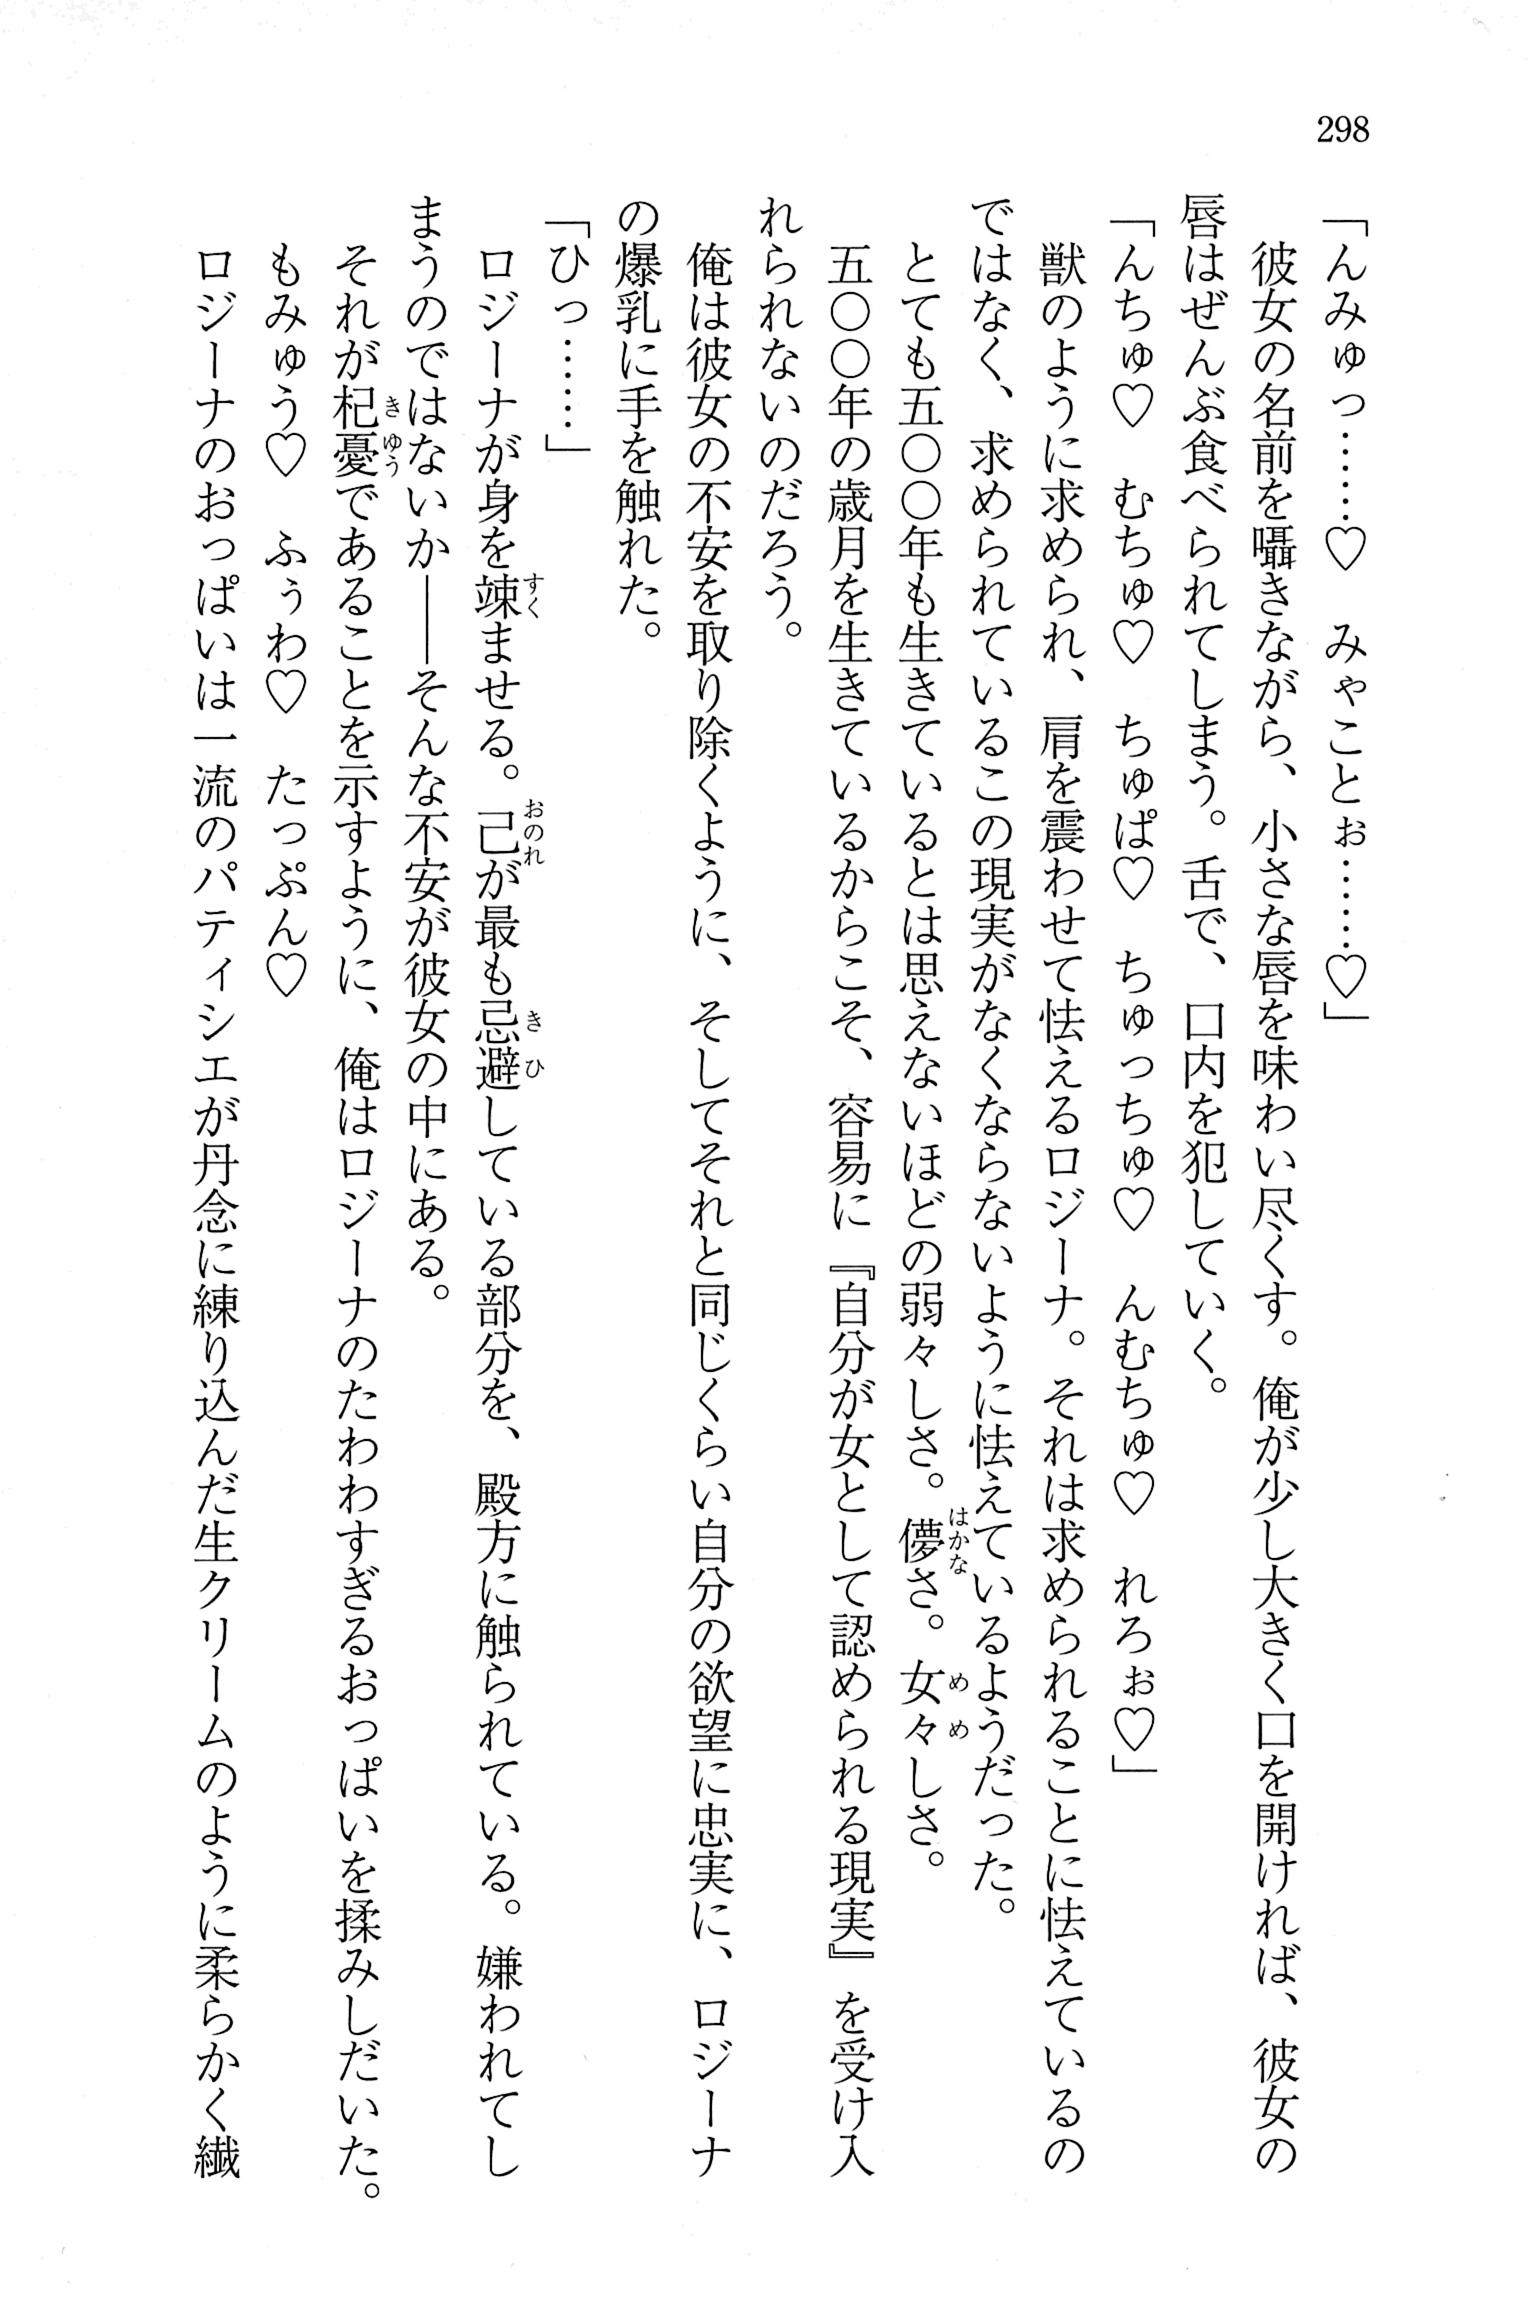 298
「んみゅっ……♡　みゃことぉ……♡」
　彼女の名前を囁きながら、小さな唇を味わい尽くす。俺が少し大きく口を開ければ、彼女の
唇はぜんぶ食べられてしまう。舌で、口内を犯していく。
「んちゅ♡　むちゅ♡　ちゅぱ♡　ちゅっちゅ♡　んむちゅ♡　れろぉ♡」
　獣のように求められ、肩を震わせて怯えるロジーナ。それは求められることに怯えているの
ではなく、求められているこの現実がなくならないように怯えているようだった。
　とても五〇〇年も生きているとは思えないほどの弱々しさ。儚さ。女々しさ。
　五〇〇年の歳月を生きているからこそ、容易に『自分が女として認められる現実』を受け入
れられないのだろう。
　俺は彼女の不安を取り除くように、そしてそれと同じくらい自分の欲望に忠実に、ロジーナ
の爆乳に手を触れた。
「ひっ……」
　ロジーナが身を竦ませる。己が最も忌避している部分を、殿方に触られている。嫌われてし
まうのではないか――そんな不安が彼女の中にある。
　それが杞憂であることを示すように、俺はロジーナのたわわすぎるおっぱいを揉みしだいた。
　もみゅう♡　ふぅわ♡　たっぷん♡
　ロジーナのおっぱいは一流のパティシエが丹念に練り込んだ生クリームのように柔らかく繊